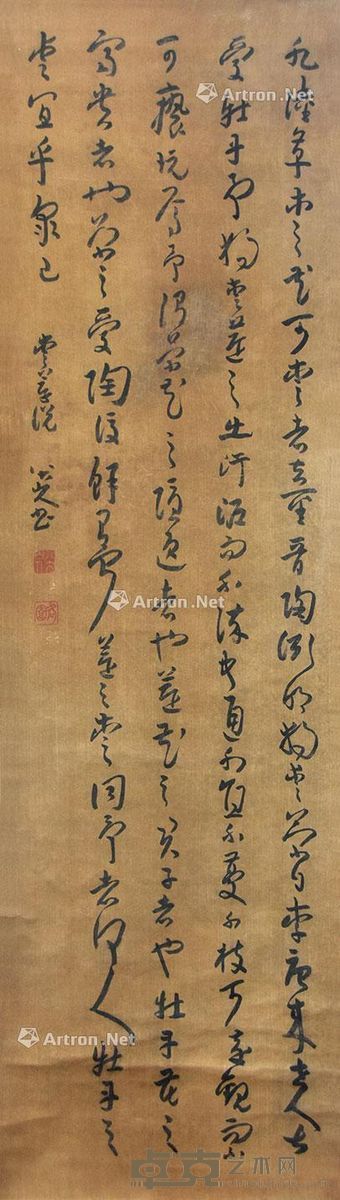 水陸草木之花可愛者甚蕃晉陶淵明獨愛菊自李唐來世人甚
愛牡丹予獨愛蓮之出淤泥而不染中通外直不蔓不枝可遠觀而不
可褻玩焉予謂菊花之隱逸者也蓮花之君子者也牡丹花之
富貴者也菊之愛陶後鮮有聞蓮之愛同予者何人牡丹之
愛宜乎眾已
愛蓮說 八大書
Artron.Net
Artron.Net
Artron.Net
Artron.Net
Artron.Net
Artron.Net
卓克艺术网